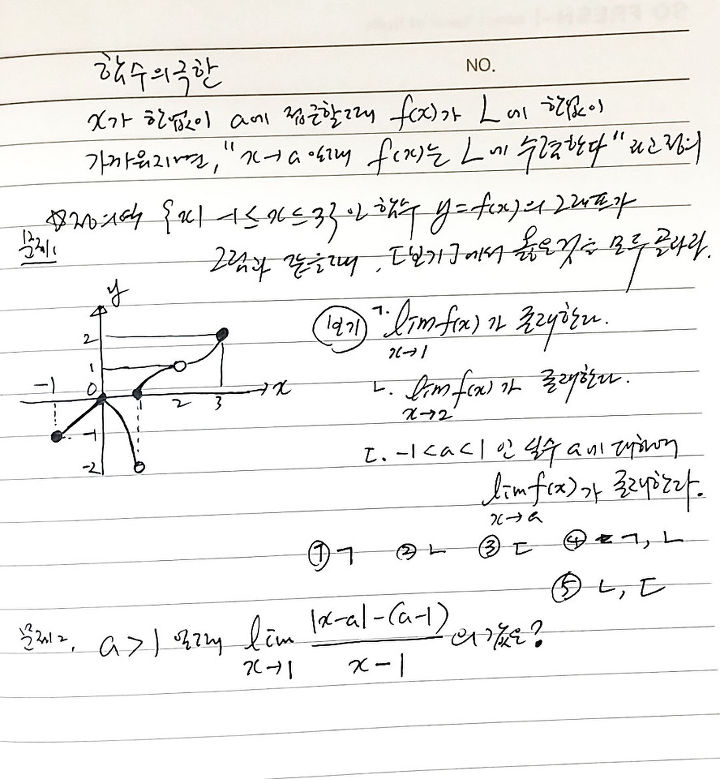 함수의극한
NO.
x가 한없이 a에 접근할때 f(x)가 L에 한없이
가까워지면, "x→a일때 f(x)는 L에 수렴한다"라고정의
☆정의역 {x| -1≤x≤3}인 함수 y=f(x)의 그래프가
문제1
그림과 같을때, [보기]에서 옳은것을 모두 골라라.
y
2
1
-1 0 1 2 3 x
-1
-2
보기 ㄱ. lim f(x)가 존재한다.
x→1
ㄴ. lim f(x)가 존재한다.
x→2
ㄷ. -1<a<1인 실수 a에 대하여
lim f(x)가 존재한다.
x→a
① ㄱ ② ㄴ ③ ㄷ ④ ㄱ, ㄴ
⑤ ㄴ, ㄷ
문제2. a>1일때 lim |x-a|-(a-1)
x→1 x-1 의 값은?